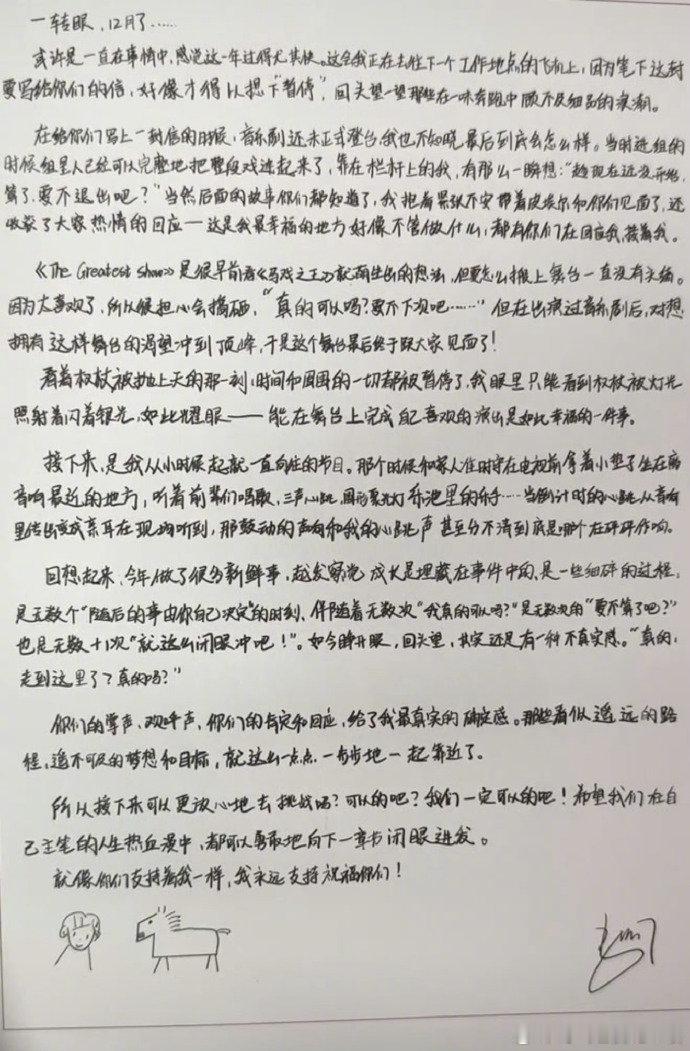 一转眼，12月了……
或许是一直在事情中，感觉这一年过得尤其快。这会我正在去往下一个工作地点的飞机上，因为笔下这封
要写给你们的信，好像才得以摁下“暂停”，回头望一望那些在一味奔跑中顾不及细品的浪潮。
在给你们写上一封信的时候，音乐剧还未正式登台，我也不知晓最后到底会怎么样。当时进组的
时候组里人已经可以完整地把整段戏连起来了，靠在栏杆上的我，有那么一瞬想：“趁现在还没开始，
算了，要不退出吧？”当然后面的故事你们都知道了，我抱着紧张不安带着皮埃尔和你们见面了，还
收获了大家热情的回应——这是我最幸福的地方好像不管做什么，都有你们在回应我，接着我。
《The Greatest Show》是很早前看《马戏之王》就萌生出的想法，但要怎么搬上舞台一直没有头绪。
因为太喜欢了，所以很担心会搞砸，“真的可以吗？要不下次吧……”但在出演过音乐剧后，对想
拥有这样舞台的渴望冲到顶峰，于是这个舞台最后终于跟大家见面了！
看着权杖被抛上天的那一刻，时间和周围的一切都被暂停了，我眼里只能看到权杖被灯光
照射着闪着银光，如此耀眼——能在舞台上完成自己喜欢的演出是如此幸福的一件事。
接下来，是我从小时候起就一直向往的节目。那个时候和家人准时守在电视前拿着小垫子坐在离
音响最近的地方，听着前辈们唱歌，三声心跳，圆形聚光灯，乐池里的乐手……当倒计时的心跳从音响
里传出变成亲耳在现场听到，那鼓动的声响和我的心跳声甚至分不清到底是哪个在砰砰作响。
回想起来，今年做了很多新鲜事，越发察觉成长是埋藏在事件中的，是一些细碎的过程，
是无数个“随后的事由你自己决定”的时刻，伴随着无数次“我真的可以吗？”是无数次的“要不算了吧？”
也是无数+1次“就这么闭眼冲吧！”。如今睁开眼，回头望，其实还是有一种不真实感。“真的，
走到这里了？真的吗？”
你们的掌声、欢呼声，你们的肯定和回应，给了我最真实的确定感。那些看似遥远的路
程，遥不可及的梦想和目标，就这么一点点、一步步地一起靠近了。
所以接下来可以更放心地去挑战吗？可以的吧？我们一定可以的吧！希望我们在自
己主笔的人生热血漫中，都可以勇敢地向下一章节闭眼进发。
就像你们支持着我一样，我永远支持祝福你们！